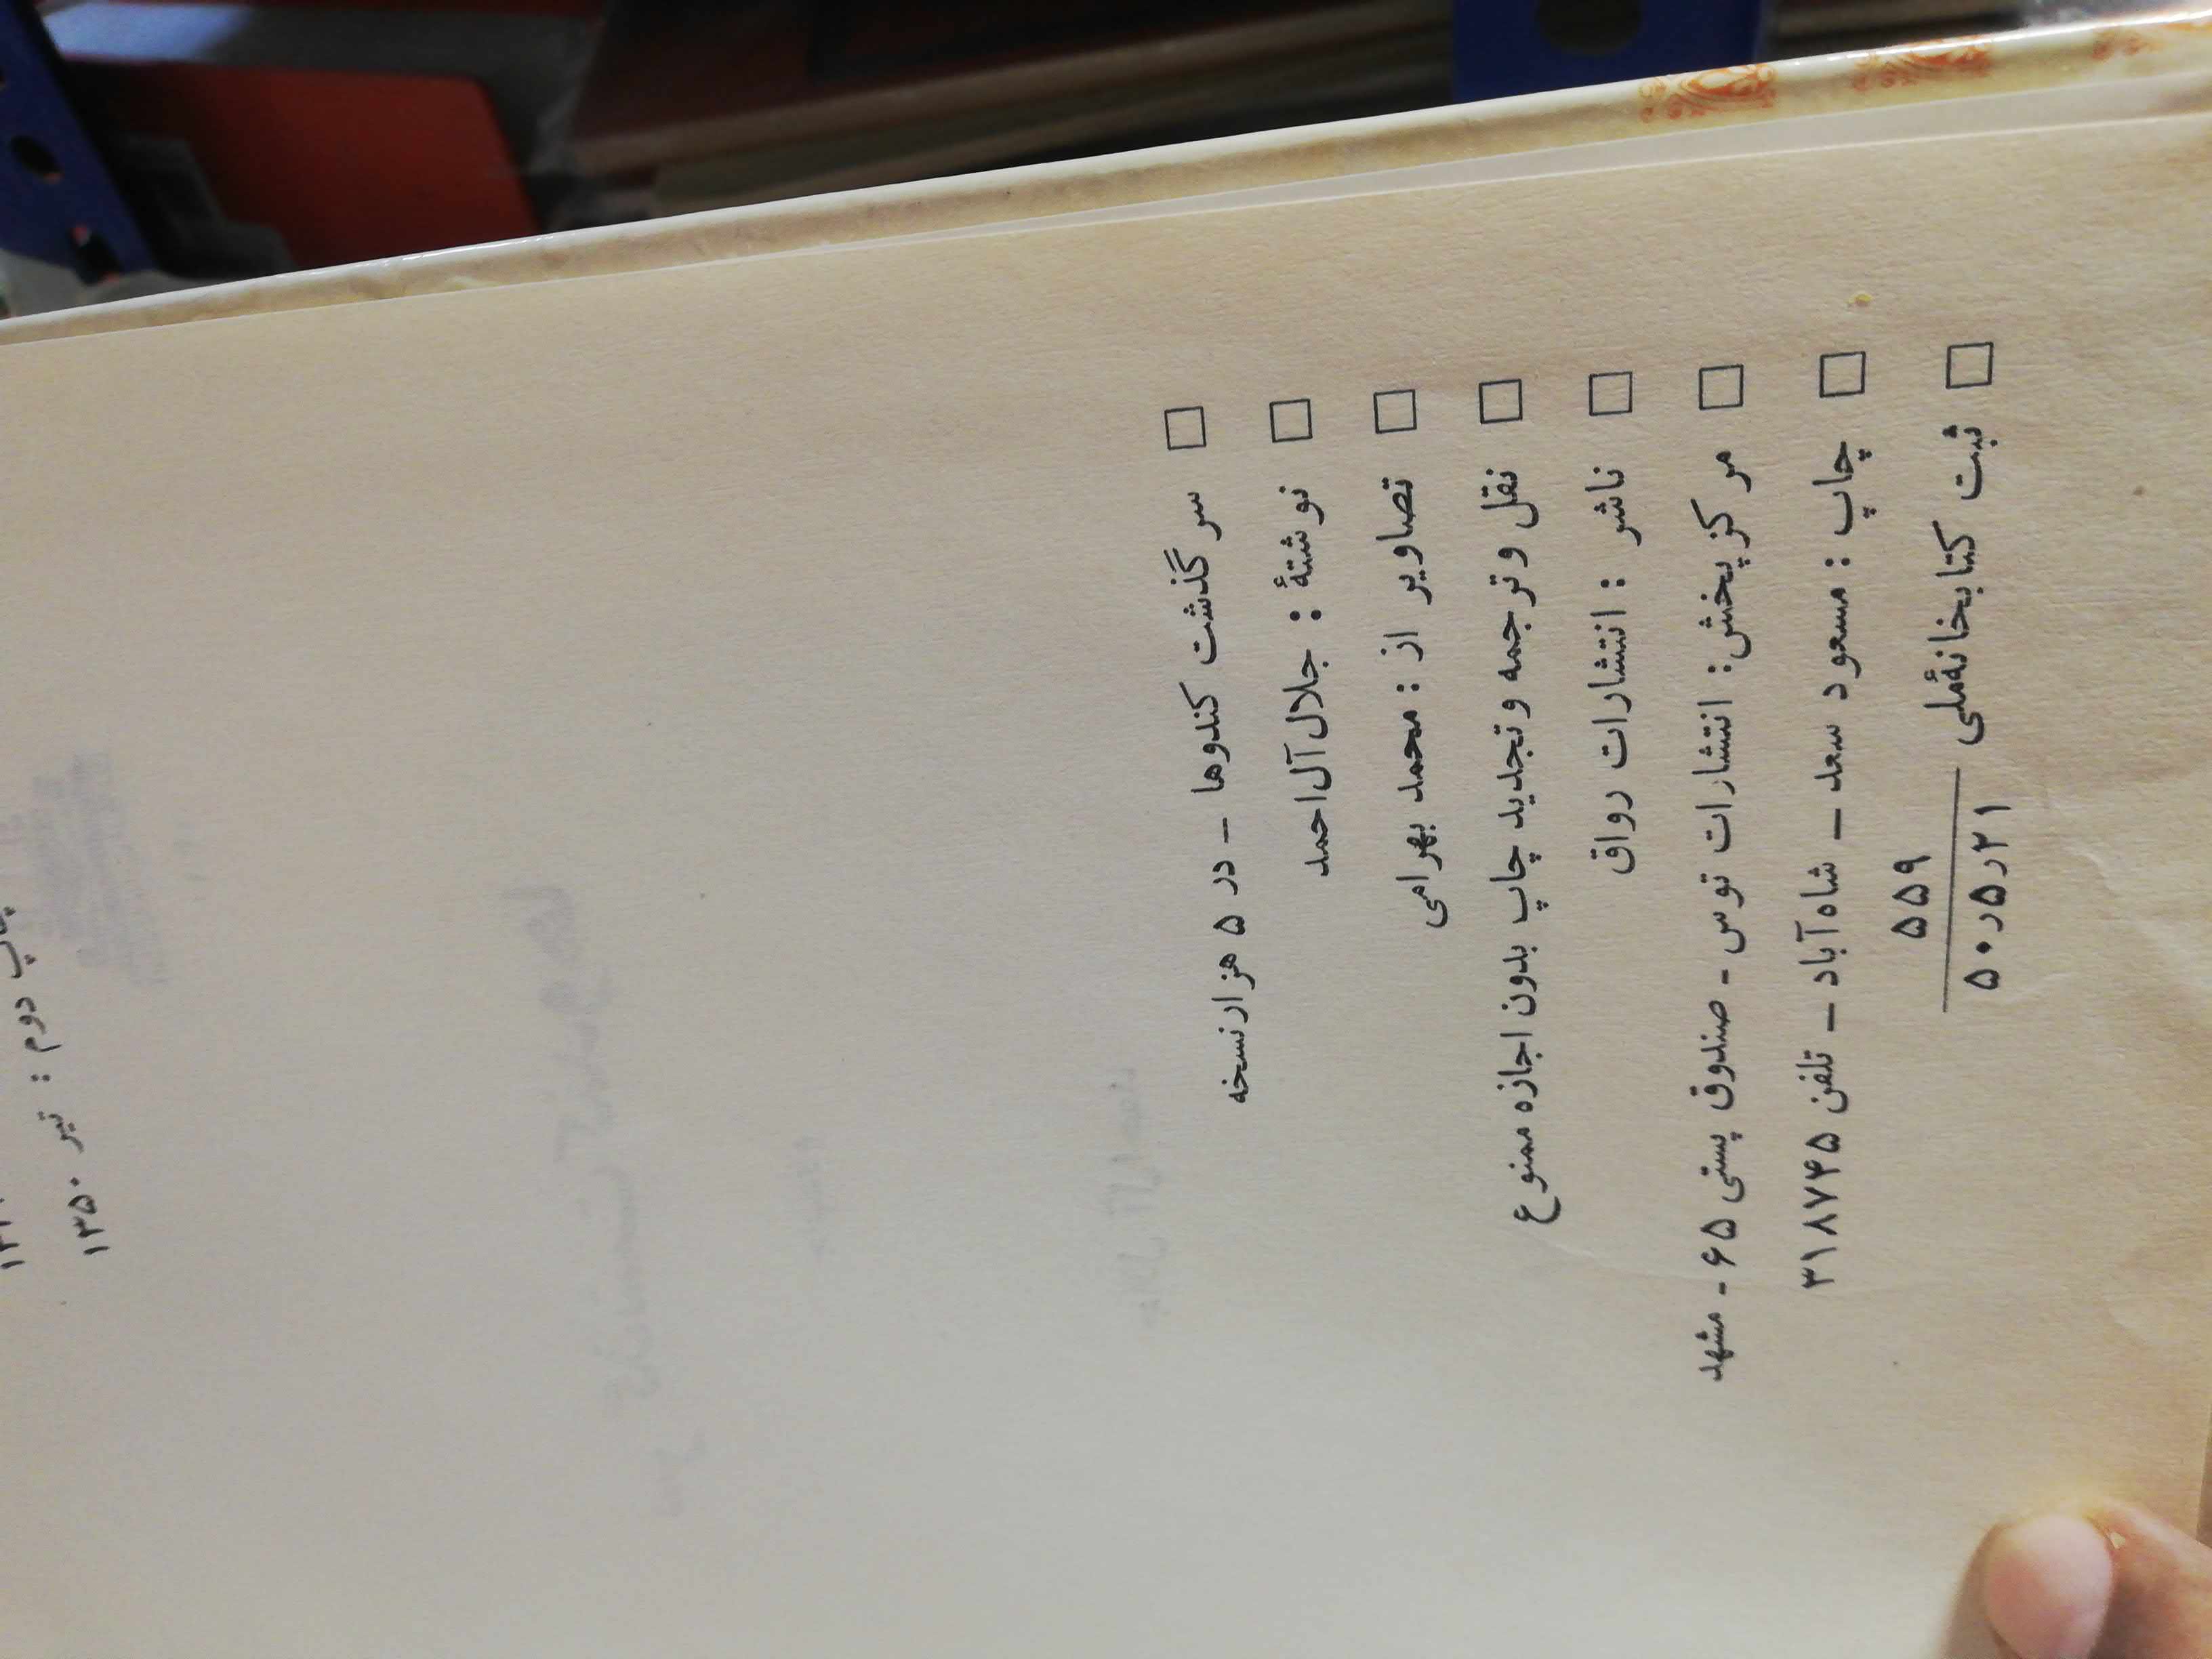 چاپ دوم : تیر ۱۳۵۰
□ سرگذشت کندوها – در ۵ هزار نسخه
□ نوشتهٔ : جلال آل‌احمد
□ تصاویر از : محمد بهرامی
□ نقل و ترجمه و تجدید چاپ بدون اجازه ممنوع
□ ناشر : انتشارات رواق
□ مرکز پخش : انتشارات توس - صندوق پستی ۶۵ - مشهد
□ چاپ : مسعود سعد – شاه‌آباد – تلفن ۳۱۸۷۴۵
□ ثبت کتابخانهٔ ملی
۵۵۹
۲۱ر۵ر۵۰